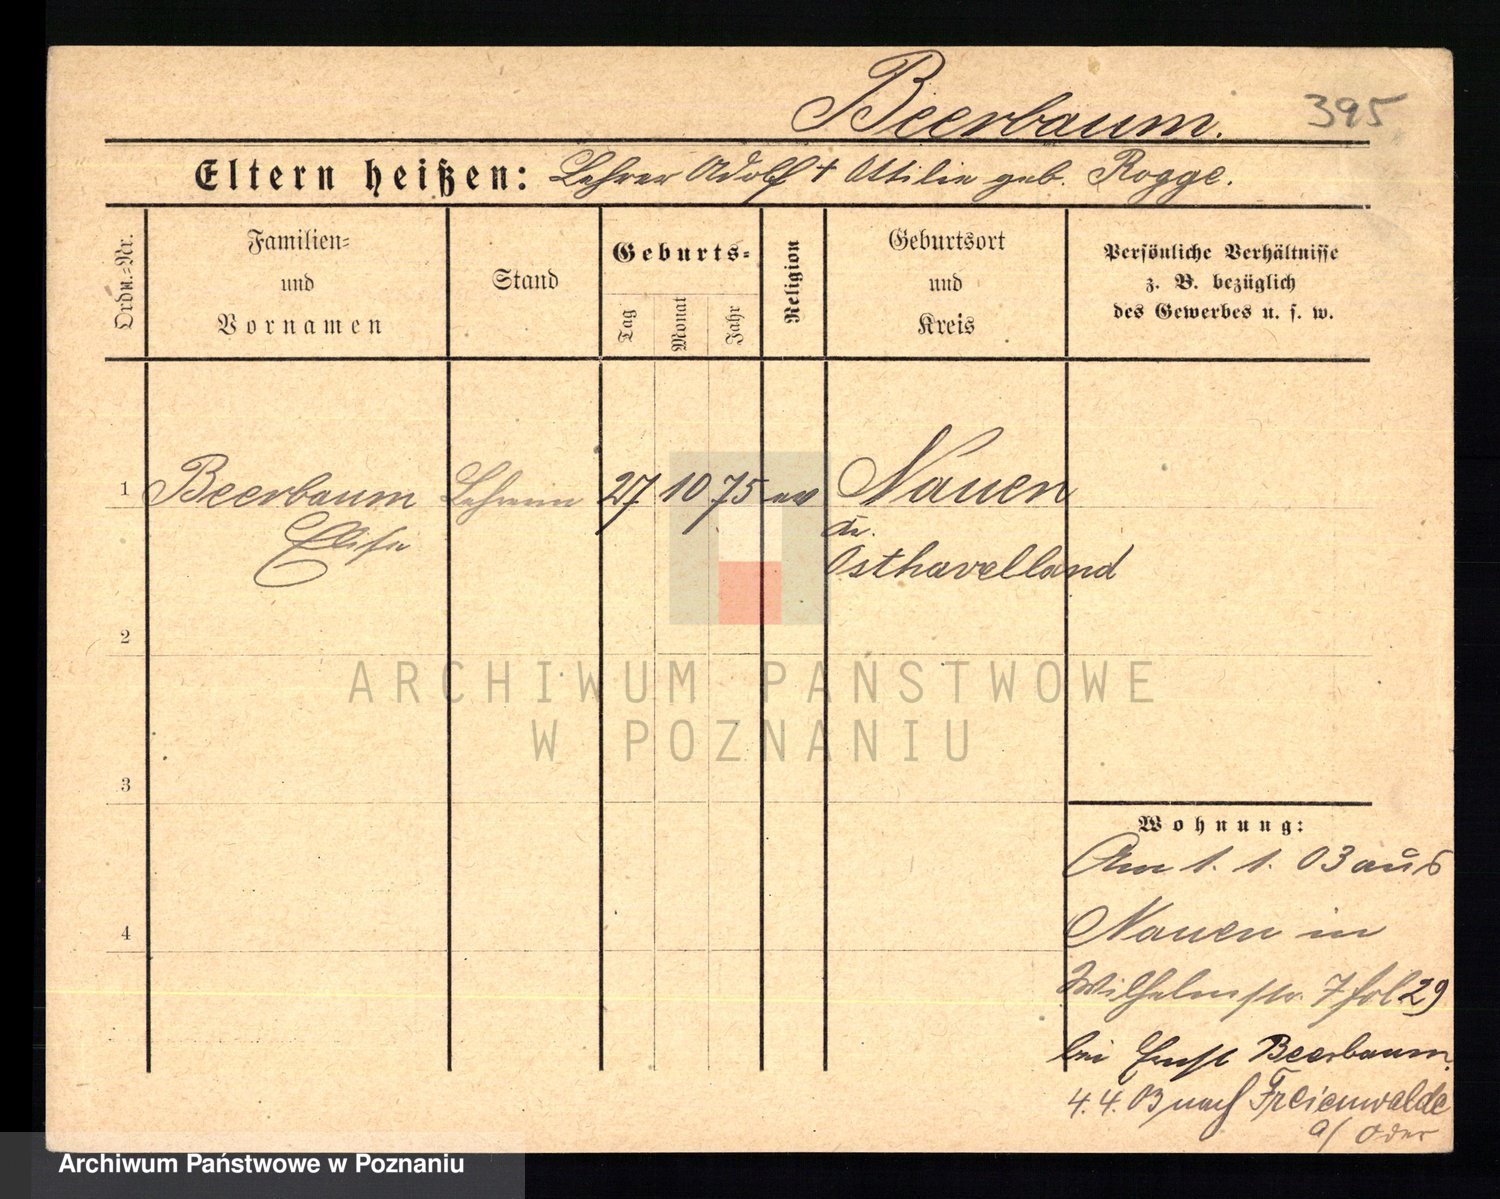 Beerbaum. 395
Eltern heißen: Lehrer Adolf + Ottilie geb. Rogge.
Ordn.-Nr.
Familien-
und
Vornamen
Stand
Geburts-
Tag Monat Jahr
Religion
Geburtsort
und
Kreis
Persönliche Verhältnisse
z. B. bezüglich
des Gewerbes u. s. w.
1 Beerbaum Lehrerin 27 10 75 ev Nauen
Elise
Osthavelland
2
3
4
Wohnung:
Am 1. 1. 03 aus
Nauen in
Wilhelmstr. 7 fol 29
bei Ernst Beerbaum.
4. 4. 03 nach Freienwalde
a/ Oder
ARCHIWUM PAŃSTWOWE
W POZNANIU
Archiwum Państwowe w Poznaniu